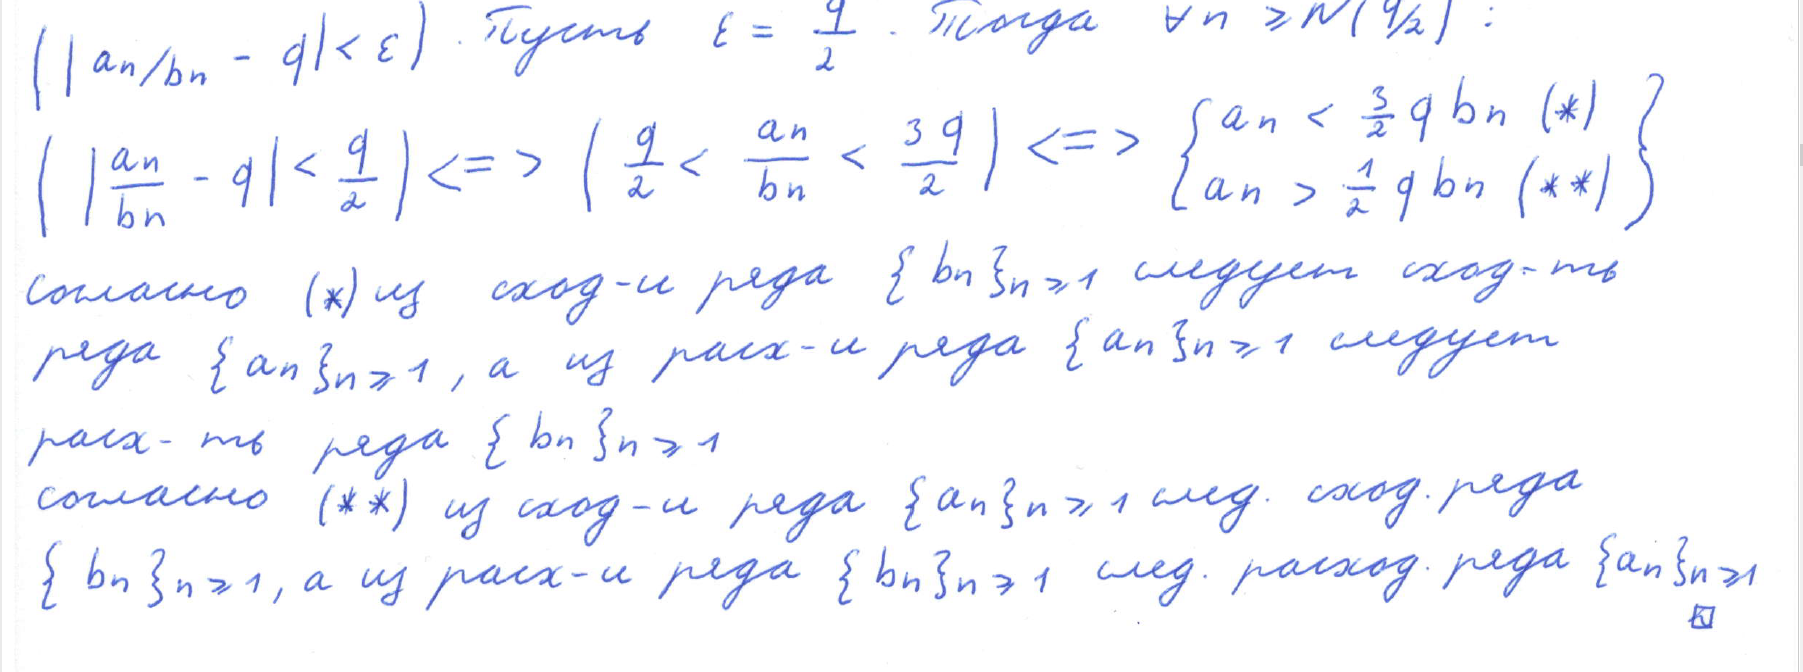 (|an/bn - q| < ε). Пусть ε = q/2. Тогда ∀n ⩾ N(q/2):
(|an/bn - q| < q/2) <=> (q/2 < an/bn < 3q/2) <=> {an < 3/2 q bn (*)
an > 1/2 q bn (**)}
согласно (*) из сход-и ряда {bn}n⩾1 следует сход-ть
ряда {an}n⩾1, а из расх-и ряда {an}n⩾1 следует
расх-ть ряда {bn}n⩾1
согласно (**) из сход-и ряда {an}n⩾1 след. сход. ряда
{bn}n⩾1, а из расх-и ряда {bn}n⩾1 след. расход. ряда {an}n⩾1